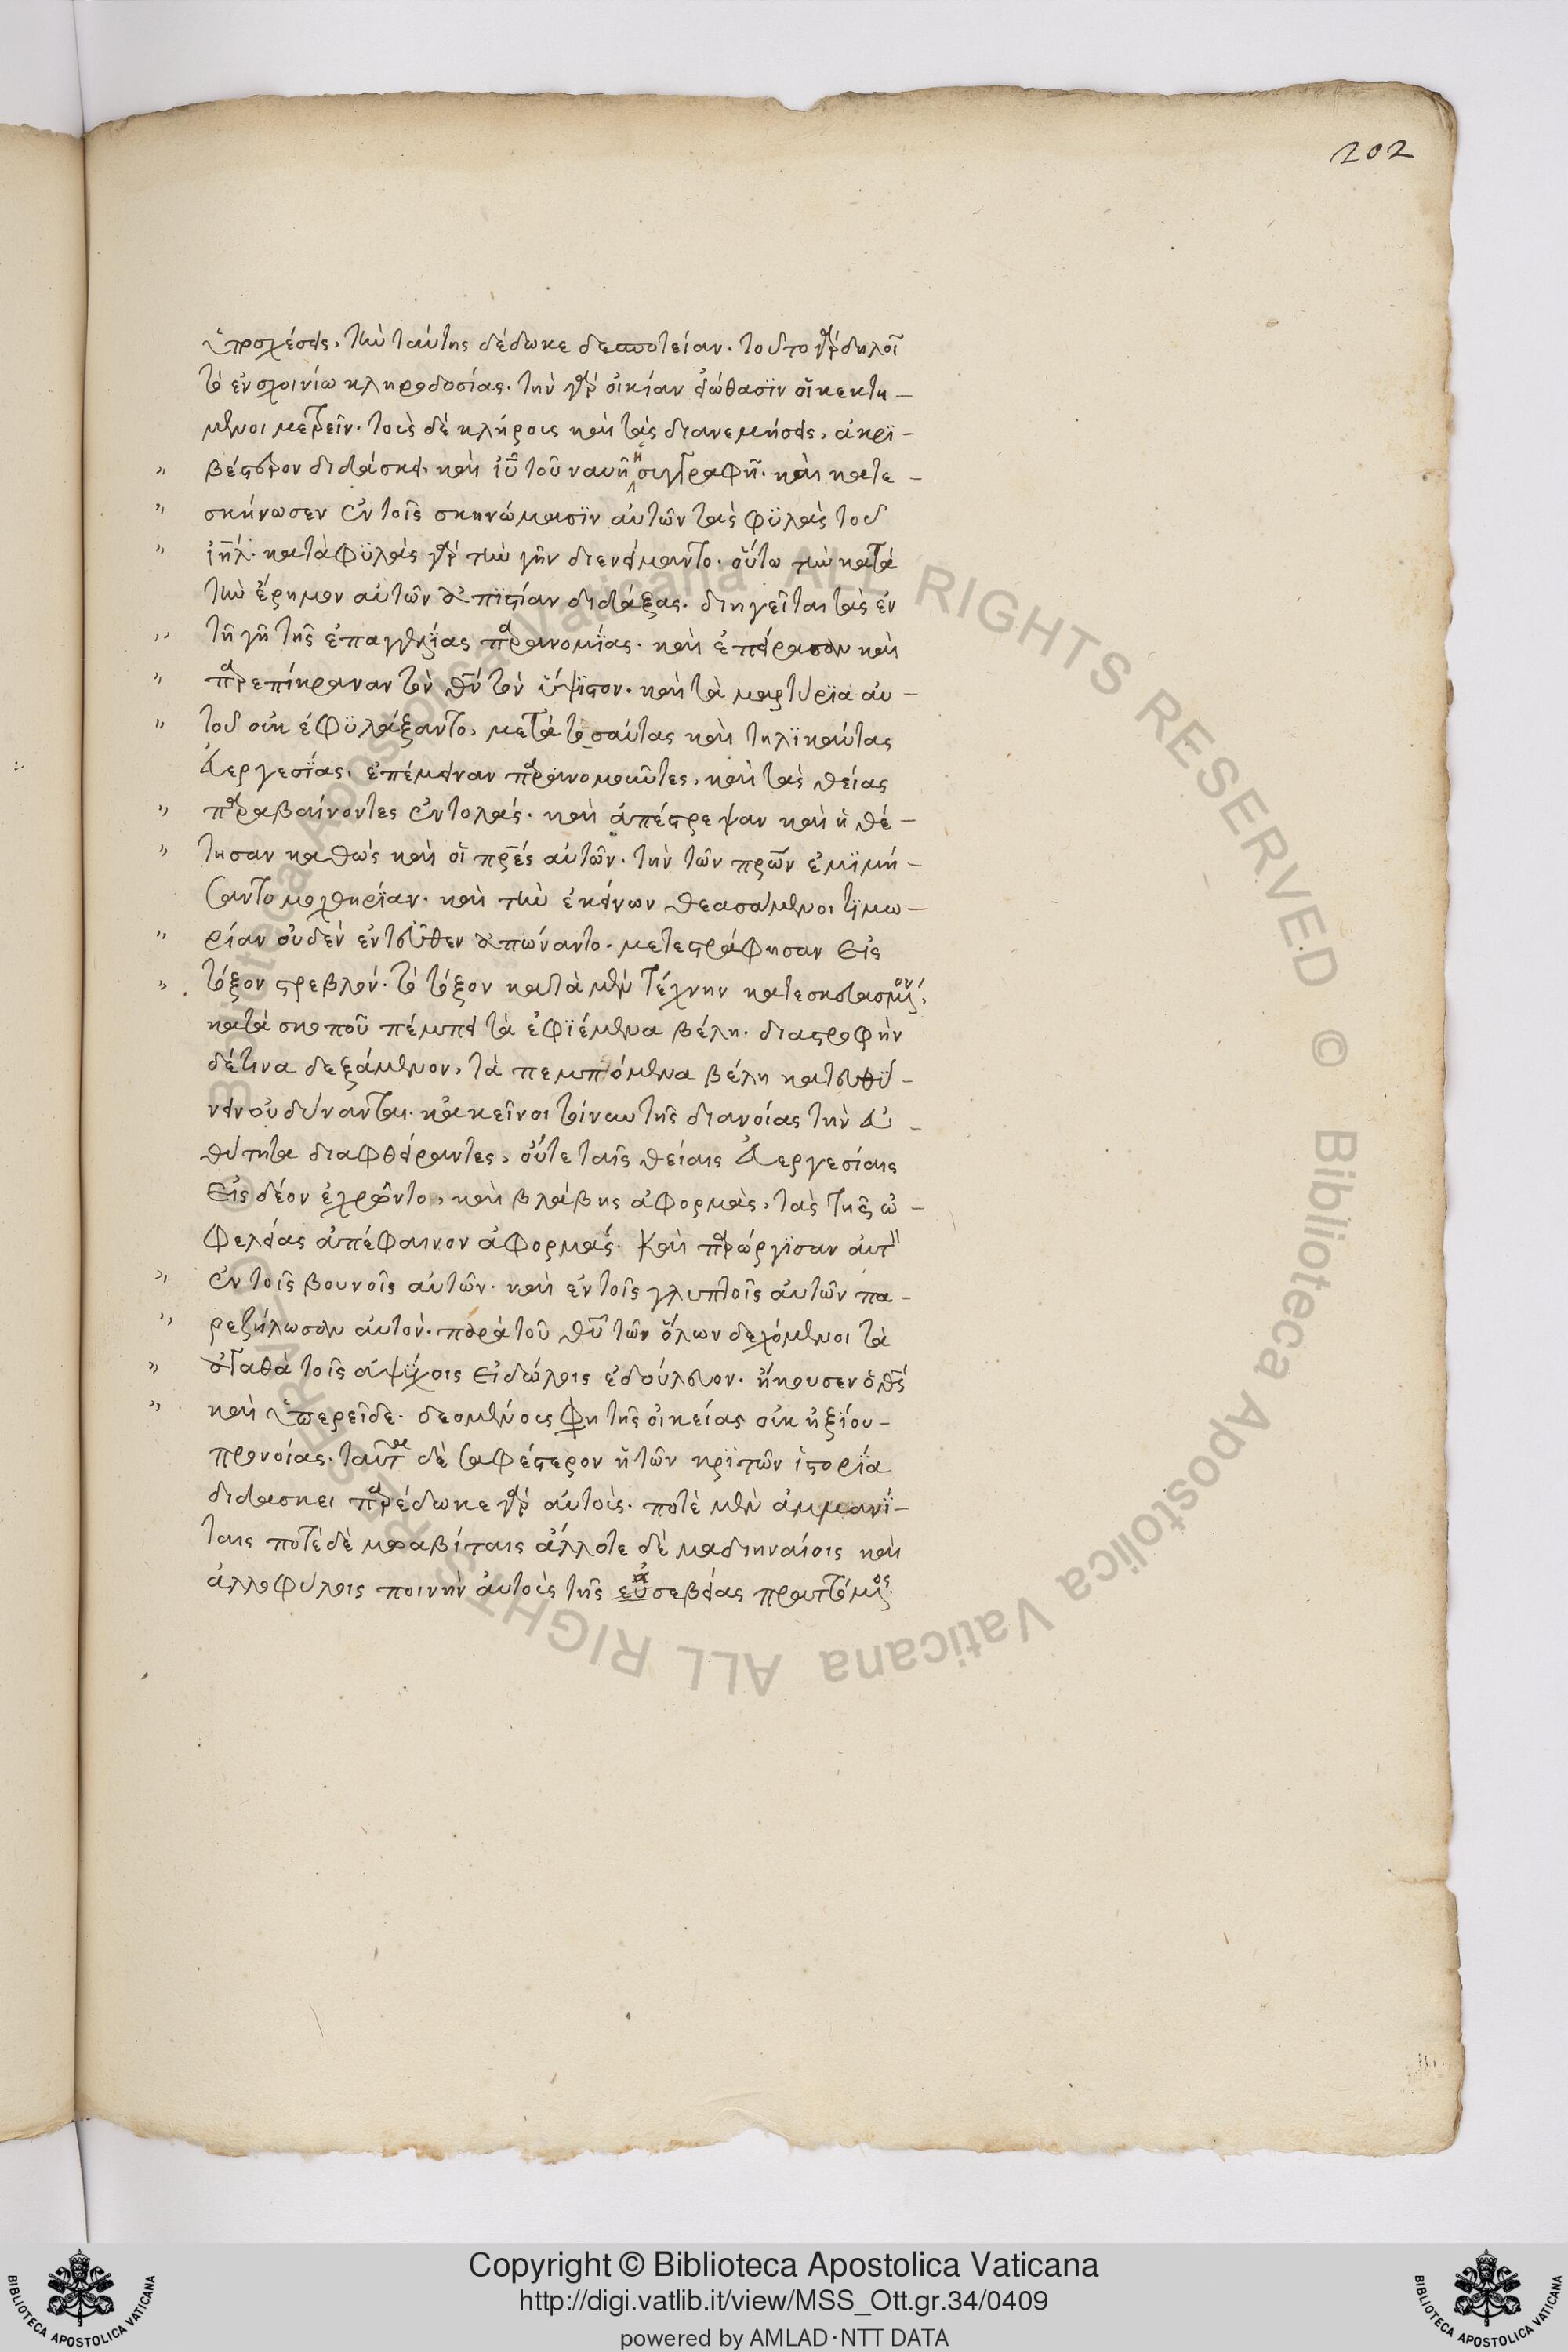 202
ὑποσχέσεις, τὴν ταύτης δέδωκε δεσποτείαν. τοῦτο γὰρ δηλοῖ
τὸ ἐν σχοινίῳ κληροδοσίας. τὴν γὰρ οἰκίαν εἰώθασϊν οἱ κεκτη-
μένοι μετρεῖν. τοὺς δὲ κλήρους καὶ τὰς διανεμήσεις, ἀκρϊ-
βέστερον διδάσκει καὶ ἰῦ τοῦ ναυῆ ἡ συγγραφῆ. καὶ κατε-
σκήνωσεν ἐν τοῖς σκηνώμασϊν αὐτῶν τὰς φϋλὰς τοῦ
ἰηλ. κατὰ φϋλὰς γὰρ τὴν γῆν διενείμαντο. οὕτω τὴν κατὰ
τὴν ἔρημον αὐτῶν ἀπϊστίαν διδάξας. διηγεῖται τὰς ἐν
τῆ γῆ τῆς ἐπαγγελίας παρανομίας. καὶ ἐπείρασαν καὶ
παρεπίκραναν τὸν θν τὸν ὕψϊστον. καὶ τὰ μαρτύρϊα αὐ-
τοῦ οὐκ ἐφϋλάξαντο, μετὰ τοσαύτας καὶ τηλϊκαύτας
εὐεργεσϊας, ἐπέμειναν παρανομοῦντες, καὶ τὰς θείας
παραβαίνοντες ἐντολάς. καὶ ἀπέστρεψαν καὶ ἠθέ-
τησαν καθὼς καὶ οἱ πρες αὐτῶν. τὴν τῶν πρων ἐμϊμή-
σαντο μοχθηρϊαν. καὶ τὴν ἐκείνων θεασάμενοι τϊμω-
ρίαν οὐδὲν ἐντεῦθεν ἀπώναντο. μετεστράφησαν εἰς
τόξον στρεβλόν. τὸ τόξον κατὰ μὲν τέχνην κατεσκευασμένον,
κατὰ σκοποῦ πέμπει τὰ ἐφϊέμενα βέλη. διαστροφὴν
δέ τινα δεξάμενον, τὰ πεμπόμενα βέλη κατευθύ-
νειν οὐ δύνανται. κἀκεῖνοι τοίνυν τῆς διανοίας τὴν εὐ-
θύτητα διαφθείραντες, οὔτε ταῖς θείαις εὐεργεσίαις
εἰς δέον ἐχρῶντο, καὶ βλάβης ἀφορμὰς, τὰς τῆς ὠ-
φελείας ἀπέφαινον ἀφορμάς. καὶ παρώργϊσαν αὐτ
ἐν τοῖς βουνοῖς αὐτῶν. καὶ ἐν τοῖς γλυπτοῖς αὐτῶν πα-
ρεζήλωσαν αὐτόν. παρὰ τοῦ θυ τῶν ὅλων δεχόμενοι τὰ
ἀγαθὰ τοῖς ἀψύχοις εἰδώλοις ἐδούλευον. ἤκουσεν ὁ θς
καὶ ὑπερεῖδε. δεομένους φη τῆς οἰκείας οὐκ ἠξίου-
προνοίας. ταῦτα δὲ σαφέστερον ἡ τῶν κρϊτῶν ἱστορϊα
διδάσκει παρέδωκε γὰρ αὐτοὺς. ποτὲ μὲν ἀμμανϊ-
ταις ποτὲ δὲ μωαβίταις ἄλλοτε δὲ μαδιηναίοις καὶ
ἀλλοφύλοις ποινὴν αὐτοὺς τῆς εὐσεβείας πραττόμενος.
Copyright © Biblioteca Apostolica Vaticana
http://digi.vatlib.it/view/MSS_Ott.gr.34/0409
powered by AMLAD·NTT DATA
BIBLIOTECA APOSTOLICA VATICANA
BIBLIOTECA APOSTOLICA VATICANA